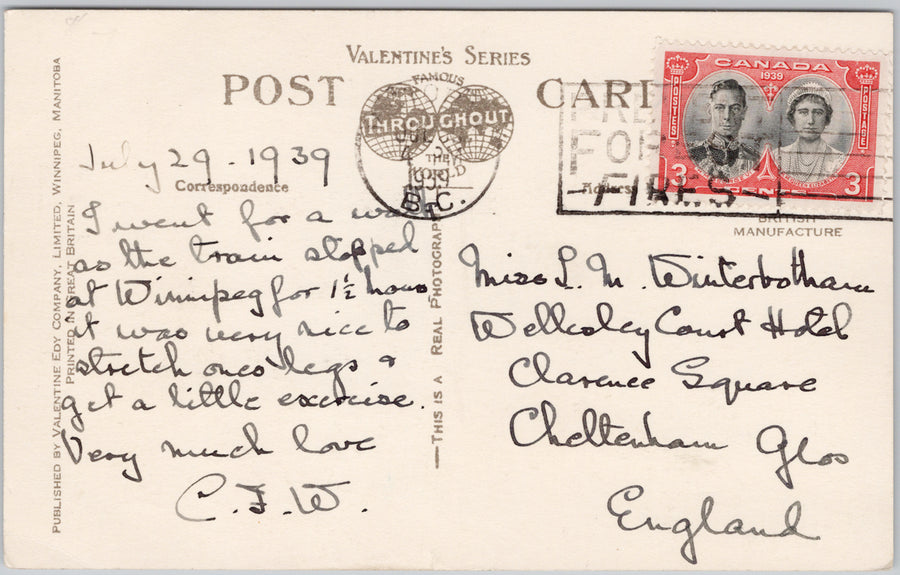 VALENTINE'S SERIES
POST CARD
FAMOUS
THROUGHOUT
THE
WORLD
1939
B.C.
FOR
FIRES
CANADA
1939
POSTES
POSTAGE
3 CENTS 3
July 29 - 1939
Correspondence
Address
BRITISH
MANUFACTURE
I went for a walk
as the train stopped
at Winnipeg for 1½ hours
it was very nice to
stretch ones legs &
get a little exercise.
Very much love
C.F.W.
Miss L. M. Winterbotham
Wellesley Court Hotel
Clarence Square
Cheltenham Glos
England
PUBLISHED BY VALENTINE EDY COMPANY, LIMITED, WINNIPEG, MANITOBA
PRINTED IN GREAT BRITAIN
—THIS IS A REAL PHOTOGRAPH